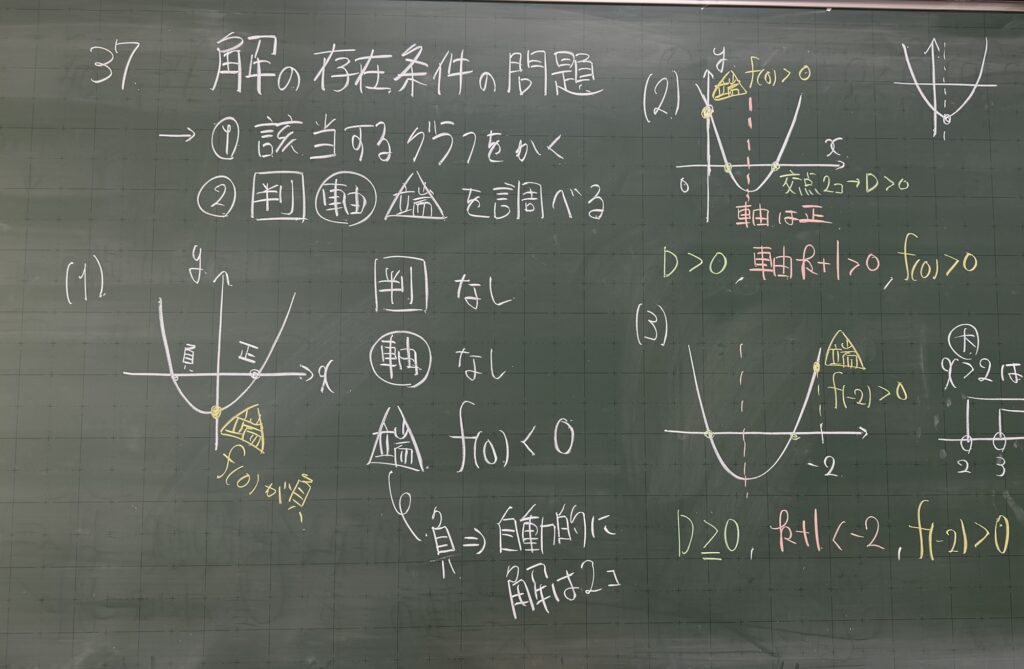 37 解の存在条件の問題
→ ① 該当するグラフをかく
② 判 軸 端 を調べる
(1)
y
負 正
x
端
f(0)が負
判 なし
軸 なし
端 f(0) < 0
負 ⇒ 自動的に
解は2コ
(2)
y
端 f(0)>0
x
0
交点2コ→D>0
軸は正
D>0, 軸k+1>0, f(0)>0
(3)
端
f(-2)>0
-2
D≧0, k+1<-2, f(-2)>0
x>2は
2 3